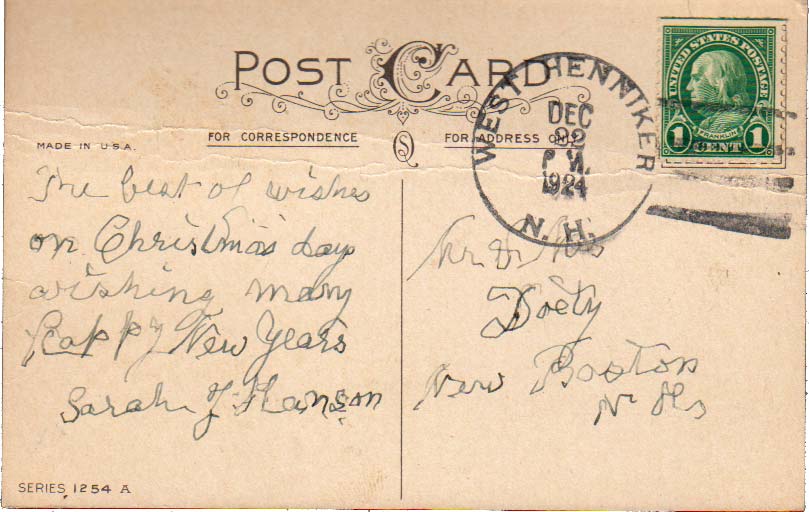 POST CARD
FOR CORRESPONDENCE
FOR ADDRESS ONLY
MADE IN U.S.A.
UNITED STATES POSTAGE
FRANKLIN
1 CENT 1
WEST HENNIKER
DEC
22
P.M.
1924
N. H.
The best of wishes
on Christmas day
wishing many
Happy New Years
Sarah J Hanson
Mr & Mrs
Doety
New Boston
N H
SERIES 1254 A